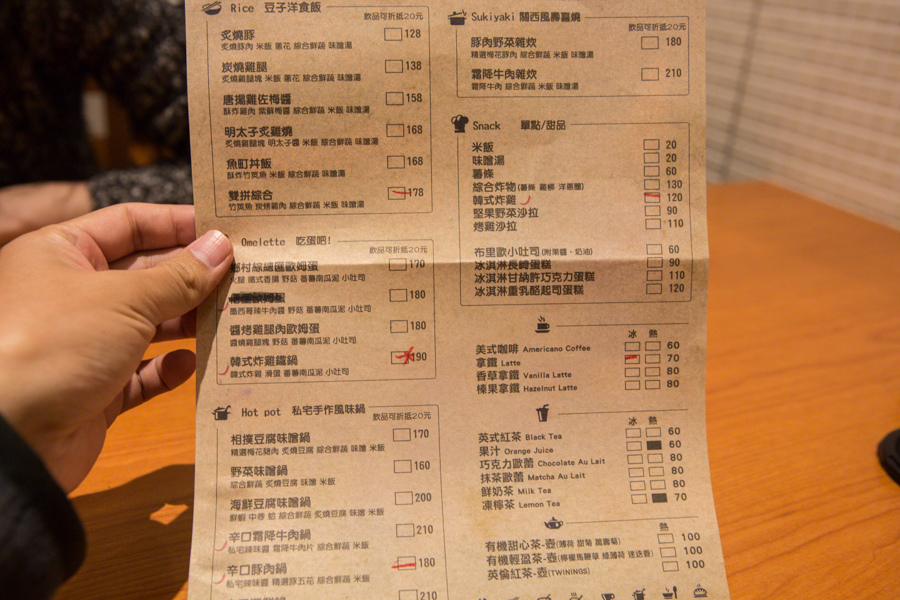 Rice 豆子洋食飯
飲品可折抵20元
炙燒豚 128
炙燒豚肉 米飯 蔥花 綜合鮮蔬 味噌湯
炭燒雞腿 138
炙燒雞腿塊 米飯 蔥花 綜合鮮蔬 味噌湯
唐揚雞佐梅醬 158
酥炸雞肉 紫蘇梅醬 綜合鮮蔬 米飯 味噌湯
明太子炙雞燒 168
炙燒雞腿塊 明太子醬 米飯 綜合鮮蔬 味噌湯
魚町丼飯 168
酥炸竹筴魚 米飯 綜合鮮蔬 味噌湯
雙拼綜合 178
竹筴魚 炭烤雞肉 綜合鮮蔬 米飯 味噌湯
Omelette 吃蛋吧!
飲品可折抵20元
鄉村綜總匯歐姆蛋 170
火腿 德式香腸 野菇 蕃薯南瓜泥 小吐司
180
墨西哥辣牛肉醬 野菇 蕃薯南瓜泥 小吐司
醬烤雞腿肉歐姆蛋 180
醬燒雞腿塊 野菇 蕃薯南瓜泥 小吐司
韓式炸雞鐵鍋 190
韓式炸雞 滑蛋 蕃薯南瓜泥 小吐司
Hot pot 私宅手作風味鍋
飲品可折抵20元
相撲豆腐味噌鍋 170
精選梅花豬肉 炙燒豆腐 綜合鮮蔬 味噌 米飯
野菜味噌鍋 160
綜合鮮蔬 炙燒豆腐 味噌 米飯
海鮮豆腐味噌鍋 200
鮮蝦 中卷 蛤 綜合鮮蔬 炙燒豆腐 味噌 米飯
辛口霜降牛肉鍋 210
私宅辣味醬 霜降牛肉片 綜合鮮蔬 米飯
辛口豚肉鍋 180
私宅辣味醬 精選豚五花 綜合鮮蔬 米飯
210
Sukiyaki 關西風壽喜燒
飲品可折抵20元
豚肉野菜雜炊 180
精選梅花豚肉 綜合鮮蔬 米飯 味噌湯
霜降牛肉雜炊 210
霜降牛肉 綜合鮮蔬 米飯 味噌湯
Snack 單點/甜品
米飯 20
味噌湯 20
薯條 60
綜合炸物(薯條 雞柳 洋蔥圈) 130
韓式炸雞 120
堅果野菜沙拉 90
烤雞沙拉 110
布里歐小吐司(附果醬、奶油) 60
冰淇淋長崎蛋糕 90
冰淇淋甘納許巧克力蛋糕 110
冰淇淋重乳酪起司蛋糕 120
冰 熱
美式咖啡 Americano Coffee 60
拿鐵 Latte 70
香草拿鐵 Vanilla Latte 80
榛果拿鐵 Hazelnut Latte 80
冰 熱
英式紅茶 Black Tea 60
果汁 Orange Juice 60
巧克力歐蕾 Chocolate Au Lait 80
抹茶歐蕾 Matcha Au Lait 80
鮮奶茶 Milk Tea 80
凍檸茶 Lemon Tea 70
熱
有機甜心茶-壺(薄荷 甜菊 萬壽菊) 100
有機輕盈茶-壺(檸檬馬鞭草 綠薄荷 迷迭香) 100
英倫紅茶-壺(TWININGS) 100